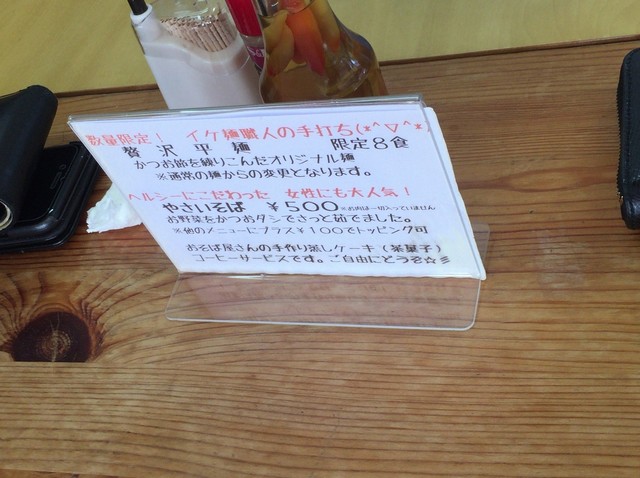 数量限定! イケ麺職人の手打ち(*^▽^*)
贅沢平麺 限定8食
かつお節を練りこんだオリジナル麺
※通常の麺からの変更となります。
ヘルシーにこだわった 女性にも大人気!
やさいそば ¥500 ※お肉は一切入っていません
お野菜をかつおダシでさっと茹でました。
※他のメニューにプラス¥100でトッピング可
おそば屋さんの手作り蒸しケーキ(茶菓子)
コーヒーサービスです。ご自由にどうぞ☆彡